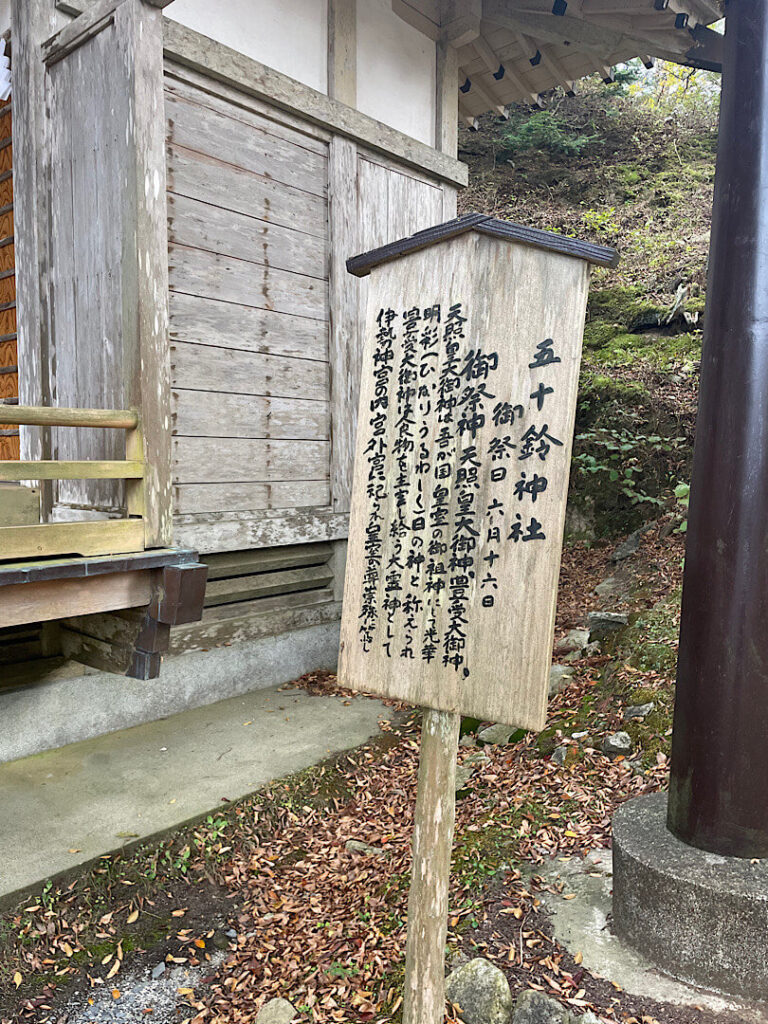 五十鈴神社
御祭日 六月十六日
御祭神 天照皇大御神、豊受大御神、
天照皇大御神は吾が国 皇室の御祖神にて光華
明彩(ひかり・うるわしく)日の神と 称えられ
豊受大御神は食物を主宰し給う大霊神として
伊勢の神宮の内宮外宮に祀られ皇室の尊崇殊に篤し